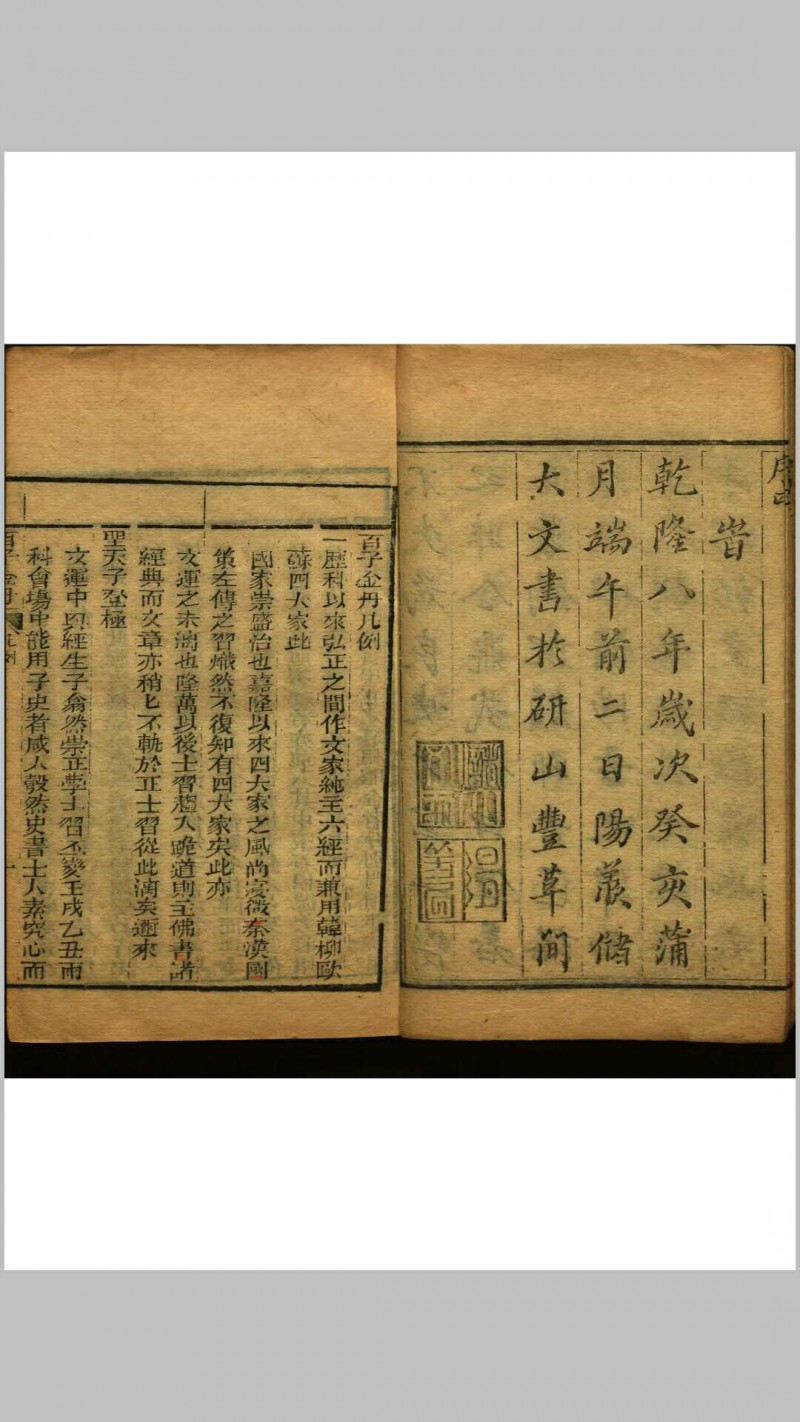 序
昔
乾隆八年歲次癸亥蒲
月端午前二日陽羨儲
大文書於研山豐草間
百子金丹凡例
一歷科以來弘正之間作文家純主六經而兼用韓柳歐
蘇四大家此
國家崇盛治也嘉隆以來四大家之風尚寖微秦漢國
策左傳之習熾然不復知有四大家矣此亦
文運之未漓也隆萬以後士習趨入詭道則主佛書諸
經典而文章亦稍匕不軌於正士習從此漓矣邇來
聖天子壑極
文運中興經生子翕然崇正學士習丕變壬戌乙丑兩
科會場中能用子史者咸入彀然史書士人素究心而
百子金丹 凡例 一